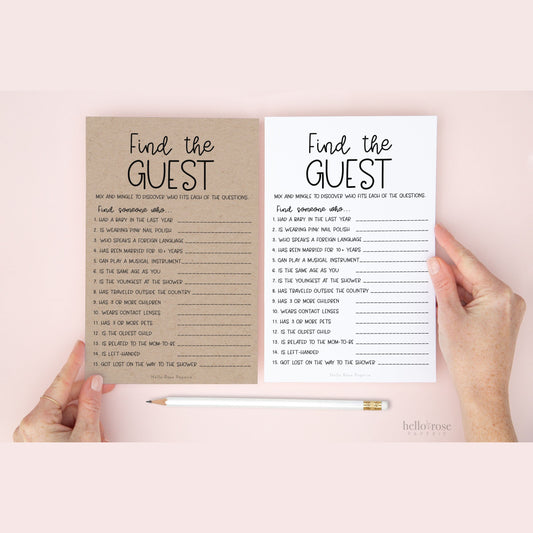 Find the
GUEST
MIX AND MINGLE TO DISCOVER WHO FITS EACH OF THE QUESTIONS.
Find someone who...
1. HAD A BABY IN THE LAST YEAR
2. IS WEARING PINK NAIL POLISH
3. WHO SPEAKS A FOREIGN LANGUAGE
4. HAS BEEN MARRIED FOR 10+ YEARS
5. CAN PLAY A MUSICAL INSTRUMENT
6. IS THE SAME AGE AS YOU
7. IS THE YOUNGEST AT THE SHOWER
8. HAS TRAVELED OUTSIDE THE COUNTRY
9. HAS 3 OR MORE CHILDREN
10. WEARS CONTACT LENSES
11. HAS 3 OR MORE PETS
12. IS THE OLDEST CHILD
13. IS RELATED TO THE MOM-TO-BE
14. IS LEFT-HANDED
15. GOT LOST ON THE WAY TO THE SHOWER
Hello Rose Paperie
Find the
GUEST
MIX AND MINGLE TO DISCOVER WHO FITS EACH OF THE QUESTIONS.
Find someone who...
1. HAD A BABY IN THE LAST YEAR
2. IS WEARING PINK NAIL POLISH
3. WHO SPEAKS A FOREIGN LANGUAGE
4. HAS BEEN MARRIED FOR 10+ YEARS
5. CAN PLAY A MUSICAL INSTRUMENT
6. IS THE SAME AGE AS YOU
7. IS THE YOUNGEST AT THE SHOWER
8. HAS TRAVELED OUTSIDE THE COUNTRY
9. HAS 3 OR MORE CHILDREN
10. WEARS CONTACT LENSES
11. HAS 3 OR MORE PETS
12. IS THE OLDEST CHILD
13. IS RELATED TO THE MOM-TO-BE
14. IS LEFT-HANDED
15. GOT LOST ON THE WAY TO THE SHOWER
Hello Rose Paperie
hello rose
PAPERIE